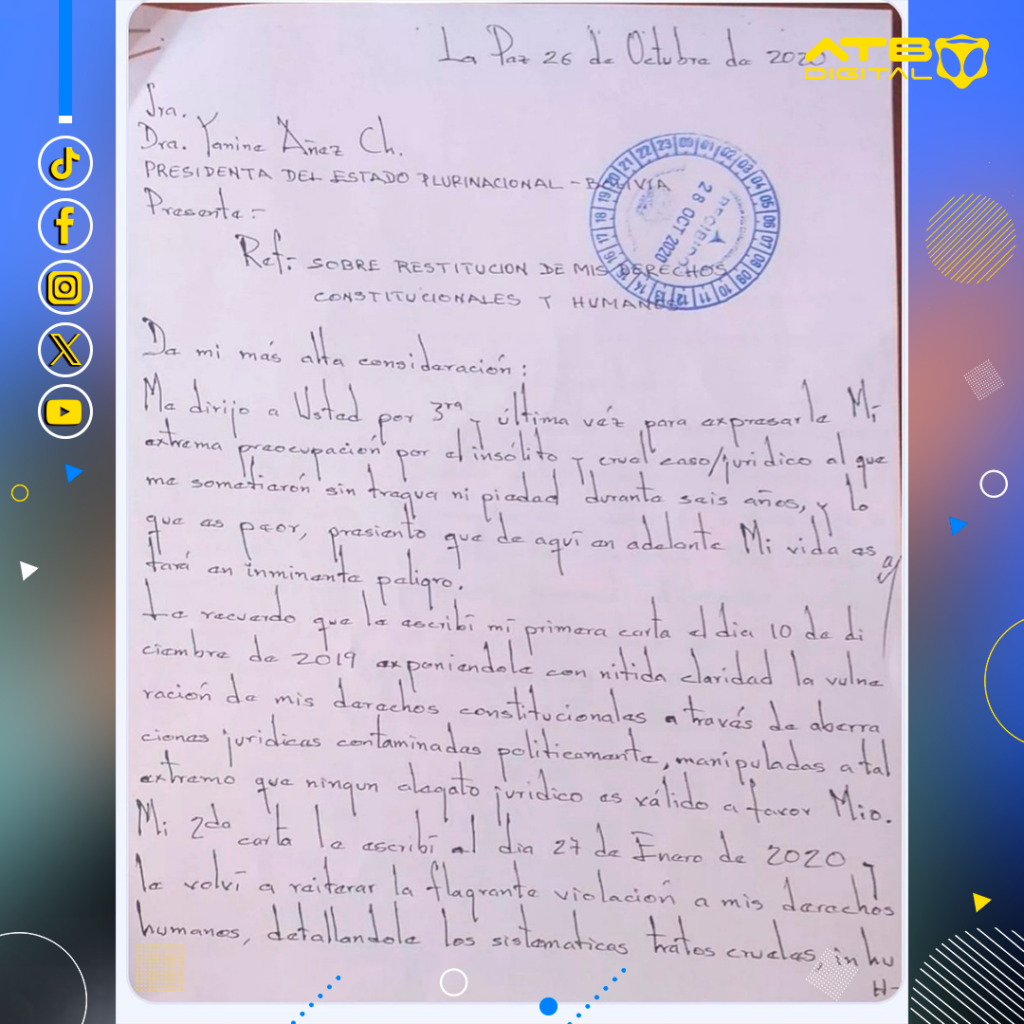 La Paz 26 de Octubre de 2020
ATB
DIGITAL
Sra.
Dra. Yanine Añez Ch.
PRESIDENTA DEL ESTADO PLURINACIONAL - BOLIVIA
Presente:-
RECIBIDO
28 OCT 2020
Ref: SOBRE RESTITUCION DE MIS DERECHOS
CONSTITUCIONALES Y HUMANOS
De mi más alta consideración:
Me dirijo a Usted por 3ra y última véz para expresarle Mi
extrema preocupación por el insólito y cruel caso/jurídico al que
me sometierón sin tregua ni piedad durante seis años, y lo
que es peor, presiento que de aquí en adelante Mi vida es
tará en inminente peligro.
Le recuerdo que le escribí mi primera carta el dia 10 de di
ciembre de 2019 exponiendole con nitida claridad la vulne
ración de mis derechos constitucionales a través de aberra
ciones juridicas contaminadas politicamente, manipuladas a tal
extremo que ningun alegato jurídico es válido a favor Mio.
Mi 2da carta le escribí el dia 27 de Enero de 2020 y
le volví a reiterar la flagrante violación a mis derechos
humanos, detallandole los sistematicos tratos crueles, in hu
H-